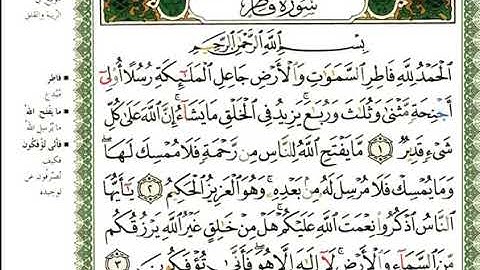 سورة فاطر
بِسْمِ اللَّهِ الرَّحْمَٰنِ الرَّحِيمِ
الْحَمْدُ لِلَّهِ فَاطِرِ السَّمَاوَاتِ وَالْأَرْضِ جَاعِلِ الْمَلَائِكَةِ رُسُلًا أُولِي
أَجْنِحَةٍ مَثْنَىٰ وَثُلَاثَ وَرُبَاعَ ۚ يَزِيدُ فِي الْخَلْقِ مَا يَشَاءُ ۚ إِنَّ اللَّهَ عَلَىٰ كُلِّ
شَيْءٍ قَدِيرٌ ١ مَا يَفْتَحِ اللَّهُ لِلنَّاسِ مِنْ رَحْمَةٍ فَلَا مُمْسِكَ لَهَا ۖ
وَمَا يُمْسِكْ فَلَا مُرْسِلَ لَهُ مِنْ بَعْدِهِ ۚ وَهُوَ الْعَزِيزُ الْحَكِيمُ ٢ يَا أَيُّهَا
النَّاسُ اذْكُرُوا نِعْمَتَ اللَّهِ عَلَيْكُمْ ۚ هَلْ مِنْ خَالِقٍ غَيْرُ اللَّهِ يَرْزُقُكُمْ
مِنَ السَّمَاءِ وَالْأَرْضِ ۚ لَا إِلَٰهَ إِلَّا هُوَ ۖ فَأَنَّىٰ تُؤْفَكُونَ ٣
الرِّيبة والقلق
فاطر
مُبْدع
ما يفتح الله
ما يُرْسِل الله
فأنى تؤفكون
فكيف
تُصْرَفُون عن
توحيده